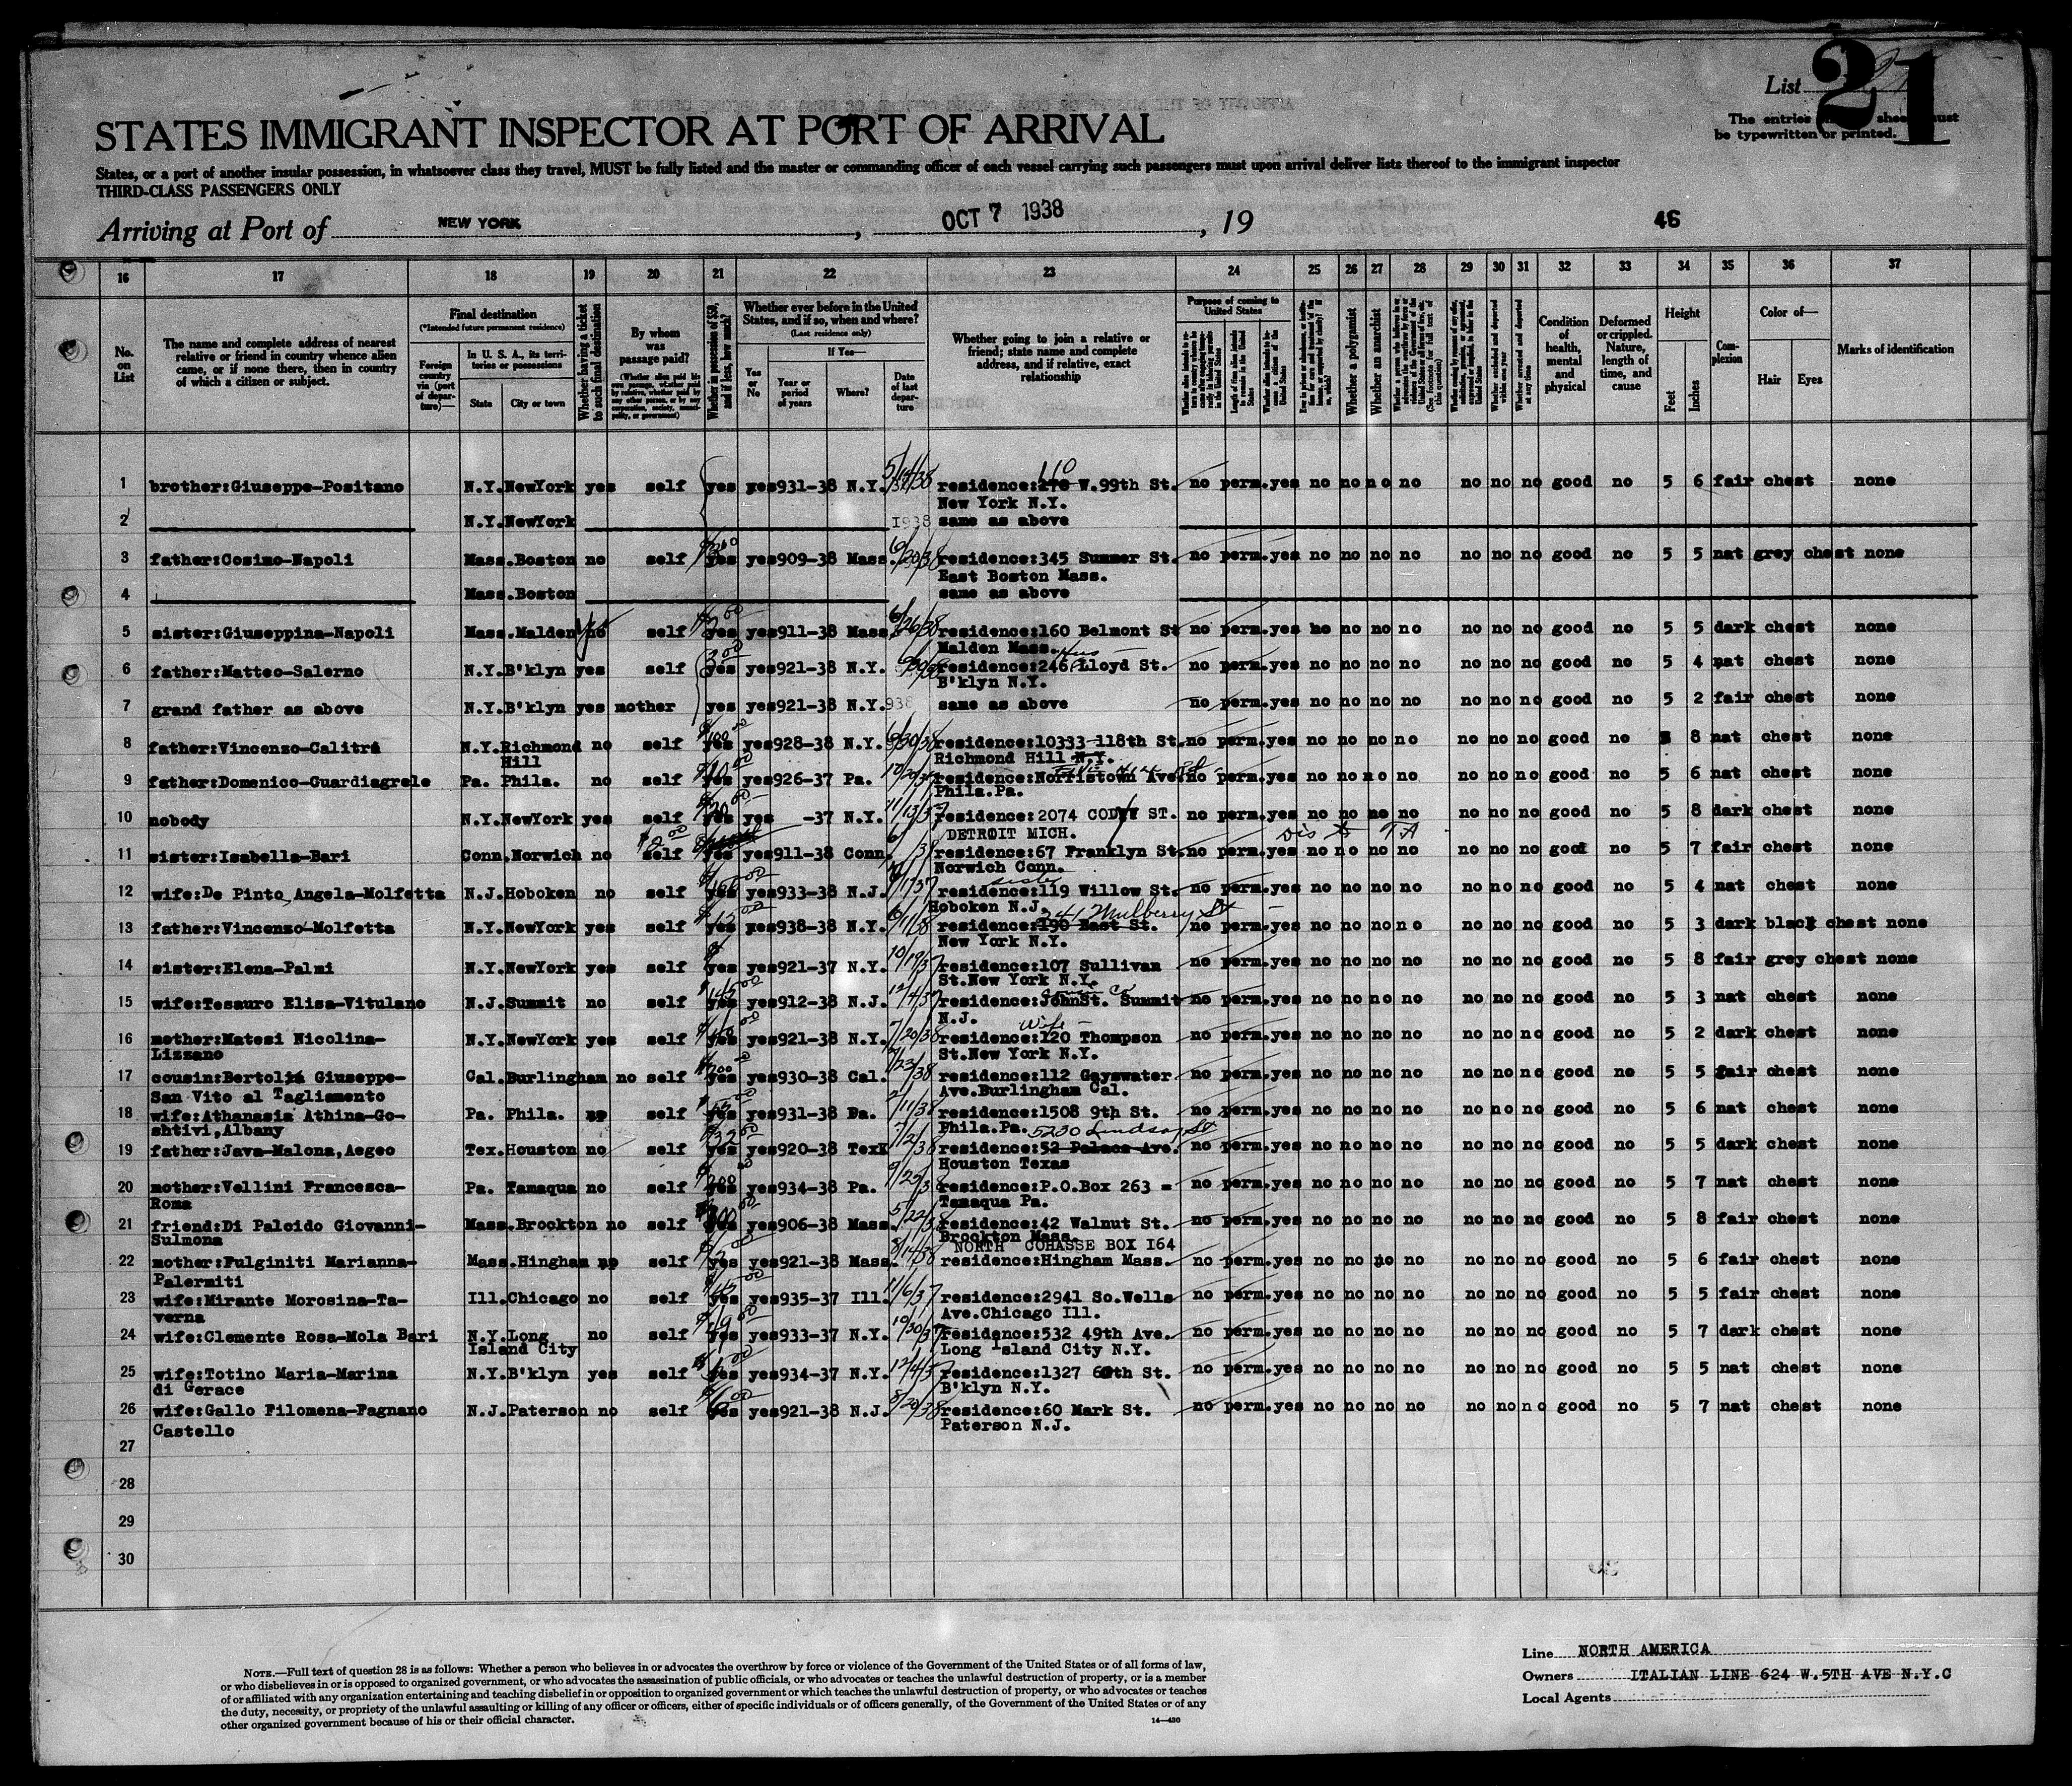 List 21
The entries must
be typewritten or printed.
STATES IMMIGRANT INSPECTOR AT PORT OF ARRIVAL
States, or a port of another insular possession, in whatsoever class they travel, MUST be fully listed and the master or commanding officer of each vessel carrying such passengers must upon arrival deliver lists thereof to the immigrant inspector
THIRD-CLASS PASSENGERS ONLY
Arriving at Port of NEW YORK, OCT 7 1938, 19
46
16 17 18 19 20 21 22 23 24 25 26 27 28 29 30 31 32 33 34 35 36 37
No. on List
The name and complete address of nearest relative or friend in country whence alien came, or if none there, then in country of which a citizen or subject.
Final destination
(*Intended future permanent residence)
Foreign country via (port of departure)—
In U. S. A., its territories or possessions
State
City or town
Whether having a ticket to such final destination
By whom was passage paid?
Whether in possession of $50, and if less, how much?
Whether ever before in the United States, and if so, when and where?
(Last residence only)
Yes or No
If Yes—
Year or period of years
Where?
Date of last departure
Whether going to join a relative or friend; state name and complete address, and if relative, exact relationship
Purpose of coming to United States
Whether a polygamist
Whether an anarchist
Condition of health, mental and physical
Deformed or crippled. Nature, length of time, and cause
Height
Feet
Inches
Complexion
Color of—
Hair
Eyes
Marks of identification
1 brother:Giuseppe-Positano N.Y. NewYork yes self yes yes 931-38 N.Y. 110 residence:270 W.99th St. no perm. yes no no no no no no no good no 5 6 fair chest none
New York N.Y.
2 N.Y. NewYork 1938 same as above
3 father:Cosimo-Napoli Mass. Boston no self yes yes 909-38 Mass. 6/20/38 residence:345 Summer St. no perm. yes no no no no no no no good no 5 5 nat grey chest none
East Boston Mass.
4 Mass. Boston same as above
5 sister:Giuseppina-Napoli Mass. Malden no self yes yes 911-38 Mass. 6/26/38 residence:160 Belmont St no perm. yes no no no no no no no good no 5 5 dark chest none
Malden Mass.
6 father:Matteo-Salerno N.Y. B'klyn yes self yes yes 921-38 N.Y. residence:246 Lloyd St. no perm. yes no no no no no no no good no 5 4 nat chest none
B'klyn N.Y.
7 grand father as above N.Y. B'klyn yes mother yes yes 921-38 N.Y. 938 same as above no perm. yes no no no no no no no good no 5 2 fair chest none
8 father:Vincenzo-Calitra N.Y. Richmond no self yes yes 928-38 N.Y. residence:10333-118th St. no perm. yes no no no no no no no good no 8 nat chest none
Hill Richmond Hill N.Y.
9 father:Domenico-Guardiagrele Pa. Phila. no self yes yes 926-37 Pa. residence:Norristown Ave. no perm. yes no no no no no no no good no 5 6 nat chest none
Phila.Pa.
10 nobody N.Y. NewYork yes self yes yes -37 N.Y. 11/13/37 residence:2074 CODY ST. no perm. yes no no no no no no no good no 5 8 dark chest none
DETROIT MICH.
11 sister:Isabella-Bari Conn. Norwich no self yes yes 911-38 Conn. residence:67 Franklyn St. no perm. yes no no no no no no no good no 5 7 fair chest none
Norwich Conn.
12 wife:De Pinto Angela-Molfetta N.J. Hoboken no self yes yes 933-38 N.J. sister residence:119 Willow St. no perm. yes no no no no no no no good no 5 4 nat chest none
Hoboken N.J.
13 father:Vincenzo-Molfetta N.Y. NewYork yes self yes yes 938-38 N.Y. 241 Mulberry St residence:190 East St. no perm. yes no no no no no no no good no 5 3 dark black chest none
New York N.Y.
14 sister:Elena-Palmi N.Y. NewYork yes self yes yes 921-37 N.Y. 10/19/37 residence:107 Sullivan no perm. yes no no no no no no no good no 5 8 fair grey chest none
St.New York N.Y.
15 wife:Tesauro Elisa-Vitulano N.J. Summit no self yes yes 912-38 N.J. residence:JohnSt. Summit no perm. yes no no no no no no no good no 5 3 nat chest none
N.J.
16 mother:Matesi Nicolina- N.Y. NewYork yes self yes yes 921-38 N.Y. 7/20/38 wife residence:120 Thompson no perm. yes no no no no no no no good no 5 2 dark chest none
Lizzano St.New York N.Y.
17 cousin:Bertolia Giuseppe- Cal. Burlingham no self yes yes 930-38 Cal. residence:112 Gayswater no perm. yes no no no no no no no good no 5 5 fair chest none
San Vito al Tagliamento Ave.Burlingham Cal.
18 wife:Athanasia Athina-Go- Pa. Phila. no self yes yes 931-38 Pa. residence:1508 9th St. no perm. yes no no no no no no no good no 5 6 nat chest none
shtivi,Albany Phila.Pa. 5230 Lindsay St
19 father:Java-Malona,Aegeo Tex. Houston no self yes yes 920-38 Tex residence:52 Palace Ave. no perm. yes no no no no no no no good no 5 5 dark chest none
Houston Texas
20 mother:Vellini Francesca- Pa. Tamaqua no self yes yes 934-38 Pa. residence:P.O.Box 263 = no perm. yes no no no no no no no good no 5 7 nat chest none
Roma Tamaqua Pa.
21 friend:Di Palcido Giovanni- Mass. Brockton no self yes yes 906-38 Mass. residence:42 Walnut St. no perm. yes no no no no no no no good no 5 8 fair chest none
Sulmona Brockton Mass.
NORTH COHASSE BOX 164
22 mother:Fulginiti Marianna- Mass. Hingham no self yes yes 921-38 Mass. residence:Hingham Mass. no perm. yes no no no no no no no good no 5 6 fair chest none
Palermiti
23 wife:Mirante Morosina-Ta- Ill. Chicago no self yes yes 935-37 Ill. 11/6/37 residence:2941 So.Wells no perm. yes no no no no no no no good no 5 5 fair chest none
verna Ave.Chicago Ill.
24 wife:Clemente Rosa-Mola Bari N.Y. Long no self yes yes 933-37 N.Y. 10/30/37 residence:532 49th Ave. no perm. yes no no no no no no no good no 5 7 dark chest none
Island City Long Island City N.Y.
25 wife:Totino Maria-Marina N.Y. B'klyn yes self yes yes 934-37 N.Y. 12/4/37 residence:1327 60th St. no perm. yes no no no no no no no good no 5 5 nat chest none
di Gerace B'klyn N.Y.
26 wife:Gallo Filomena-Fagnano N.J. Paterson no self yes yes 921-38 N.J. 8/20/38 residence:60 Mark St. no perm. yes no no no no no no no good no 5 7 nat chest none
Castello Paterson N.J.
27
28
29
30
NOTE.—Full text of question 28 is as follows: Whether a person who believes in or advocates the overthrow by force or violence of the Government of the United States or of all forms of law,
or who disbelieves in or is opposed to organized government, or who advocates the assassination of public officials, or who advocates or teaches the unlawful destruction of property, or is a member
of or affiliated with any organization entertaining and teaching disbelief in or opposition to organized government or which teaches the unlawful destruction of property, or who advocates or teaches
the duty, necessity, or propriety of the unlawful assaulting or killing of any officer or officers, either of specific individuals or of officers generally, of the Government of the United States or of any
other organized government because of his or their official character.
14—430
Line NORTH AMERICA
Owners ITALIAN LINE 624 W.5TH AVE N.Y.C
Local Agents